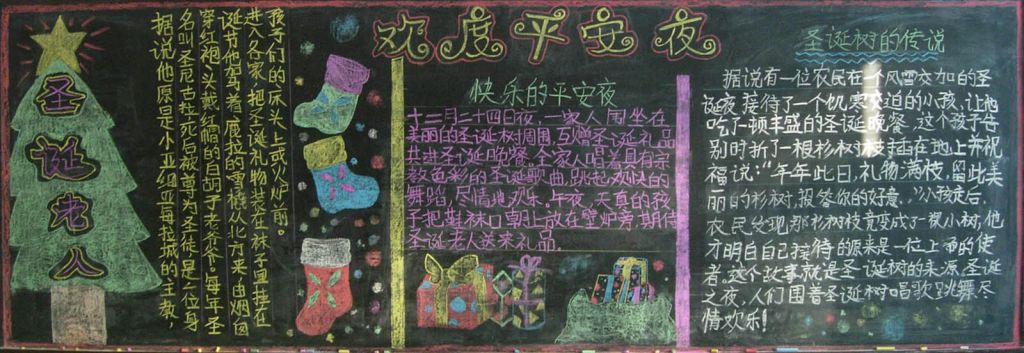 欢度平安夜
圣诞老人
据说他原是小亚细亚每拉城的主教，
名叫圣尼古拉，死后被尊为圣徒，是一位身
穿红袍、头戴红帽的白胡子老爷爷。每年圣
诞节他驾着鹿拉的雪橇从北方来，由烟囱
进入各家，把圣诞礼物装在袜子里挂在
孩子们的床头上或火炉前。
快乐的平安夜
十二月二十四日夜，一家人围坐在
美丽的圣诞树周围，互赠圣诞礼品
共进圣诞晚餐，全家人唱着具有宗
教色彩的圣诞歌曲，跳起欢快的
舞蹈，尽情地欢乐，午夜，天真的孩
子把鞋袜口朝上放在壁炉旁期待
圣诞老人送来礼品。
圣诞树的传说
据说有一位农民在一个风雪交加的圣
诞夜接待了一个饥寒交迫的小孩，让他
吃了一顿丰盛的圣诞晚餐，这个孩子告
别时折了一根杉树枝插在地上并祝
福说：“年年此日，礼物满枝，留此美
丽的杉树，报答你的好意。”小孩走后，
农民发现那杉树枝竟变成了一棵小树，他
才明白自己接待的原来是一位上帝的使
者。这个故事就是圣诞树的来源。圣诞
之夜，人们围着圣诞树唱歌跳舞尽
情欢乐！